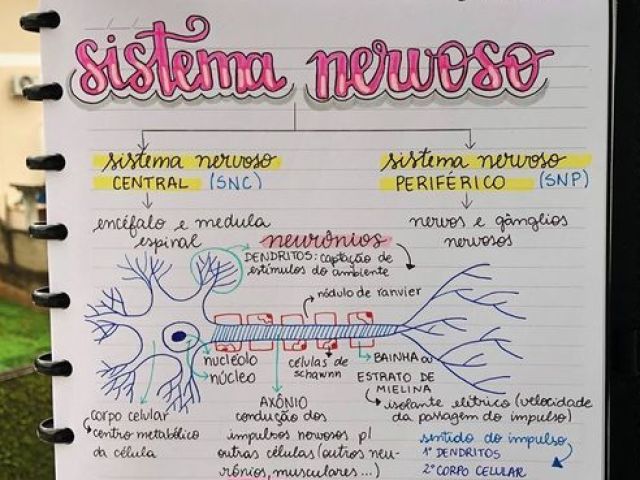 sistema nervoso
sistema nervoso
CENTRAL (SNC)
encéfalo e medula
espinal
sistema nervoso
PERIFÉRICO (SNP)
nervos e gânglios
nervosos
neurônios
DENDRITOS: captação de
estímulos do ambiente
nódulo de ranvier
nucléolo
núcleo
células de
schawnn
BAINHA ou
ESTRATO DE
MIELINA
isolante elétrico (velocidade
da passagem do impulso)
corpo celular
centro metabólico
da célula
AXÔNIO
condução dos
impulsos nervosos p/
outras células (outros neu-
rônios, musculares...)
sentido do impulso
1º DENDRITOS
2º CORPO CELULAR